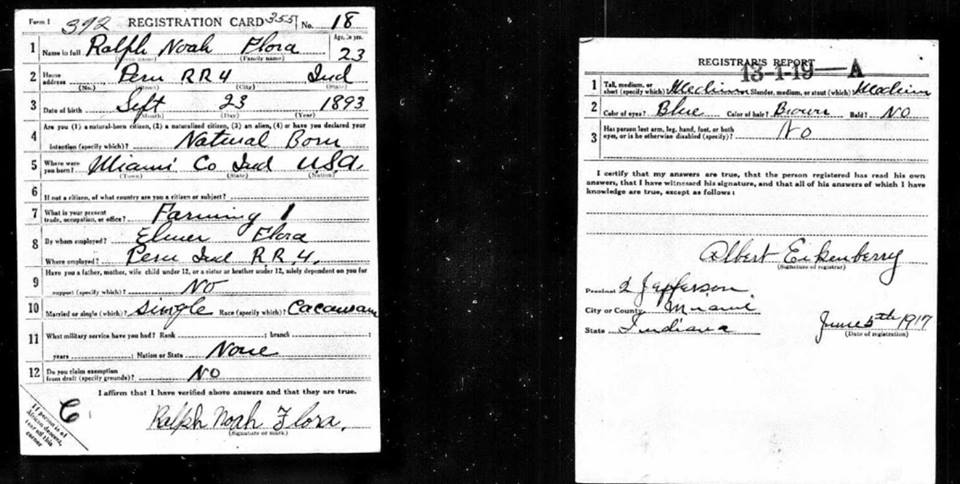 Form 1 392 REGISTRATION CARD 355 No. 18
1 Name in full Ralph Noah Flora Age, in yrs. 23
(Given name) (Family name)
2 Home address Peru RR4 Ind
(No.) (Street) (City) (State)
3 Date of birth Sept 23 1893
(Month) (Day) (Year)
Are you (1) a natural-born citizen, (2) a naturalized citizen, (3) an alien, (4) or have you declared your
4 intention (specify which)? Natural Born
5 Where were you born? Miami Co Ind U.S.A.
(Town) (State) (Nation)
6 If not a citizen, of what country are you a citizen or subject?
7 What is your present trade, occupation, or office? Farming 1
8 By whom employed? Elmer Flora
Where employed? Peru Ind R.R.4.
9 Have you a father, mother, wife, child under 12, or a sister or brother under 12, solely dependent on you for
support (specify which)? NO
10 Married or single (which)? Single Race (specify which)? Cacausam
11 What military service have you had? Rank ; branch ;
years ; Nation or State None
12 Do you claim exemption from draft (specify grounds)? NO
I affirm that I have verified above answers and that they are true.
C
If person is of African descent, tear off this corner
Ralph Noah Flora.
(Signature or mark)
REGISTRAR'S REPORT
13-1-19-A
1 Tall, medium, or short (specify which)? Medium Slender, medium, or stout (which)? Medium
2 Color of eyes? Blue Color of hair? Brown Bald? NO
3 Has person lost arm, leg, hand, foot, or both eyes, or is he otherwise disabled (specify)? NO
I certify that my answers are true, that the person registered has read his own
answers, that I have witnessed his signature, and that all of his answers of which I have
knowledge are true, except as follows:
Albert Eikenberry
(Signature of registrar)
Precinct 2 Jefferson
City or County Miami
State Indiana June 5th 1917
(Date of registration)